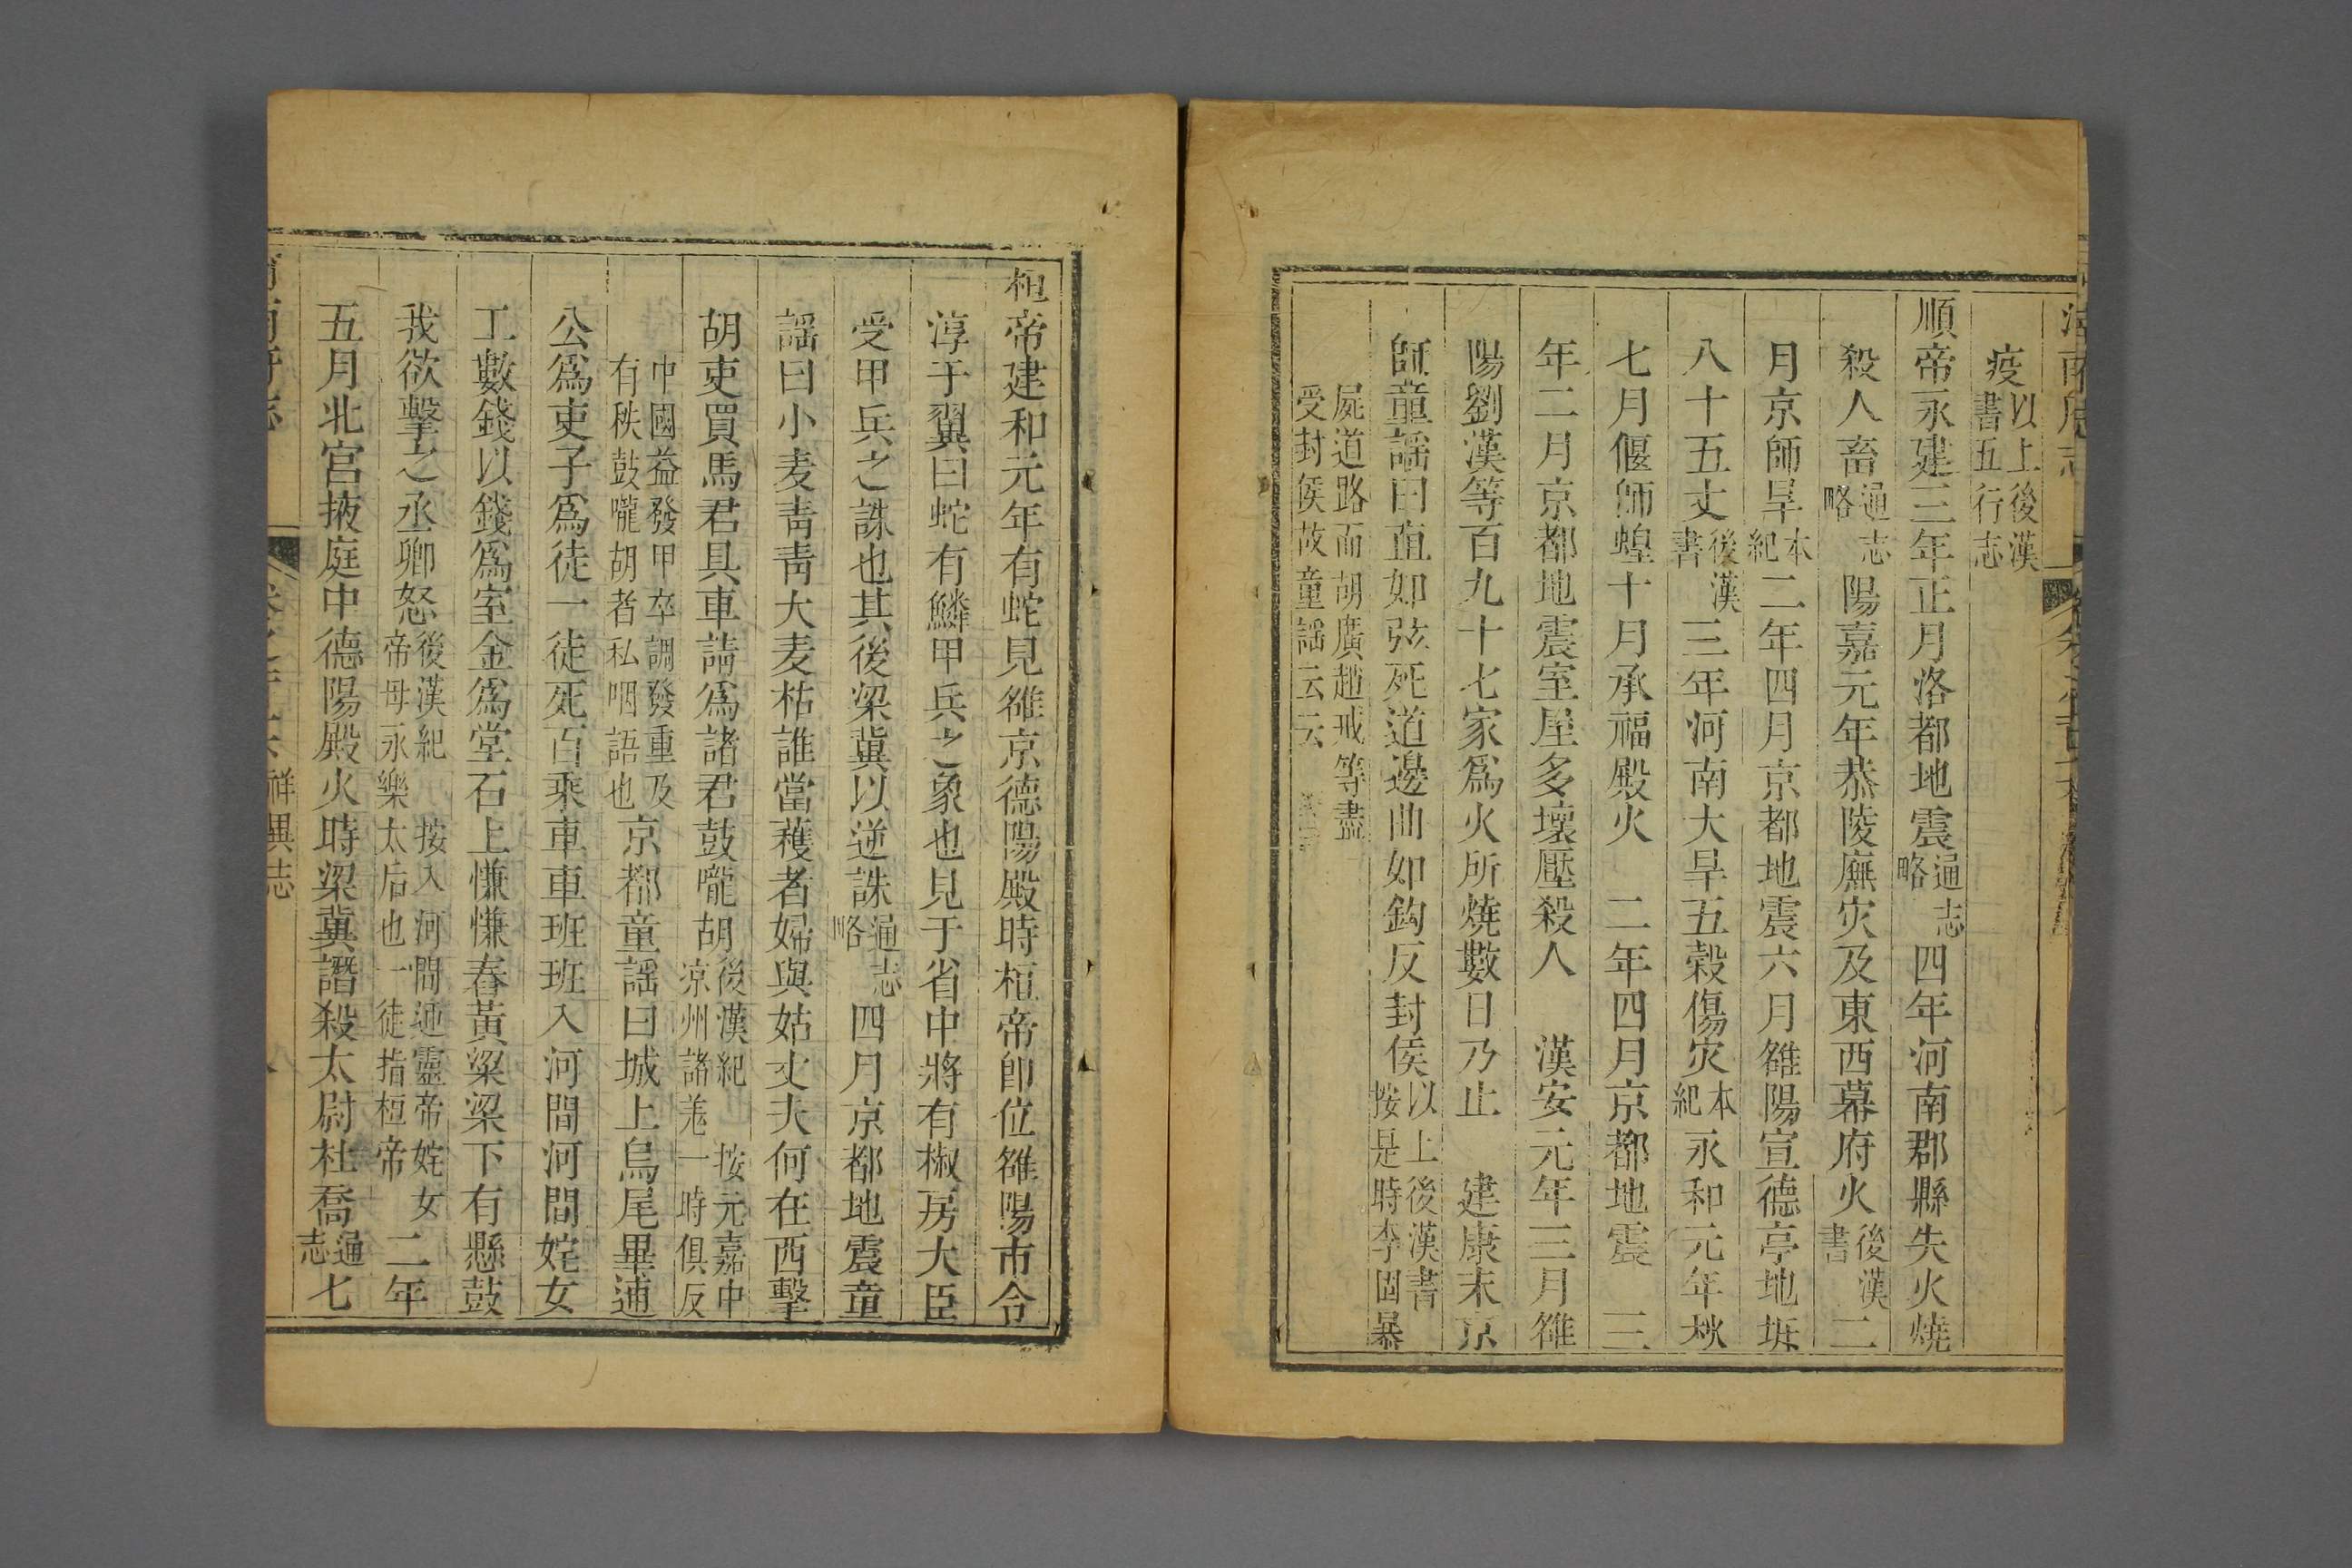 疫以上後漢書五行志
順帝永建三年正月洛都地震通志略四年河南郡縣失火燒
殺人畜通志略陽嘉元年恭陵廡灾及東西幕府火後漢書二
月京師旱本紀二年四月京都地震六月雒陽宣德亭地坼
八十五丈後漢書三年河南大旱五穀傷灾本紀永和元年秋
七月偃師蝗十月承福殿火 二年四月京都地震 三
年二月京都地震室屋多壞壓殺人 漢安元年三月雒
陽劉漢等百九十七家爲火所燒數日乃止 建康末京
師童謡曰直如弦死道邊曲如鈎反封侯以上後漢書按是時李固暴
屍道路而胡廣趙戒等盡受封侯故童謡云云
桓帝建和元年有蛇見雒京德陽殿時桓帝卽位雒陽市令
淳于翼曰蛇有鱗甲兵之象也見于省中將有椒房大臣
受甲兵之誅也其後梁冀以逆誅通志略四月京都地震童
謡曰小麦靑靑大麦枯誰當穫者婦與姑丈夫何在西擊
胡吏買馬君具車請爲諸君鼓嚨胡後漢紀 按元嘉中凉州諸羌一時俱反
中國益發甲卒調發重及有秩鼓嚨胡者私咽語也京都童謡曰城上烏尾畢逋
公爲吏子爲徒一徒死百乘車車班班入河間河間姹女
工數錢以錢爲室金爲堂石上慊慊舂黃粱梁下有懸鼓
我欲擊之丞卿怒後漢紀 按入河間迎靈帝姹女帝母永樂太后也一徒指桓帝二年
五月北宮掖庭中德陽殿火時梁冀譖殺太尉杜喬通志七
祥異志